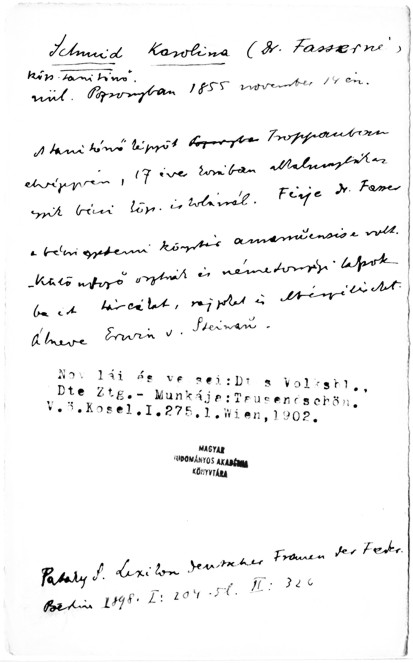 Schmid Karolina (Dr. Fasserné,
közs. tanitónő.
szül. Pozsonyban 1855 november 14 én.
A tanitónő képzőt Troppauban
elvégezvén, 17 éves korában alkalmazták az
egyik bécsi közs. iskolánál. Férje dr. Fasser
a bécsi egyetemi könyvtár amanuensise volt.
Különböző osztrák és németországi lapok
ba irt tárcákat, rajzokat és elbeszéléseket.
Álneve Erwin v. Steinau.
Nov lái és ve sei: Dt s Volksbl.,
Dte Ztg.- Munkája: Tausendschön.
V.ö.Kosel.I.275.l.Wien,1902.
MAGYAR
TUDOMÁNYOS AKADÉMIA
KÖNYVTÁRA
Pataky S. Lexikon deutscher Frauen der Feder.
Berlin 1898. I: 204 II: 326